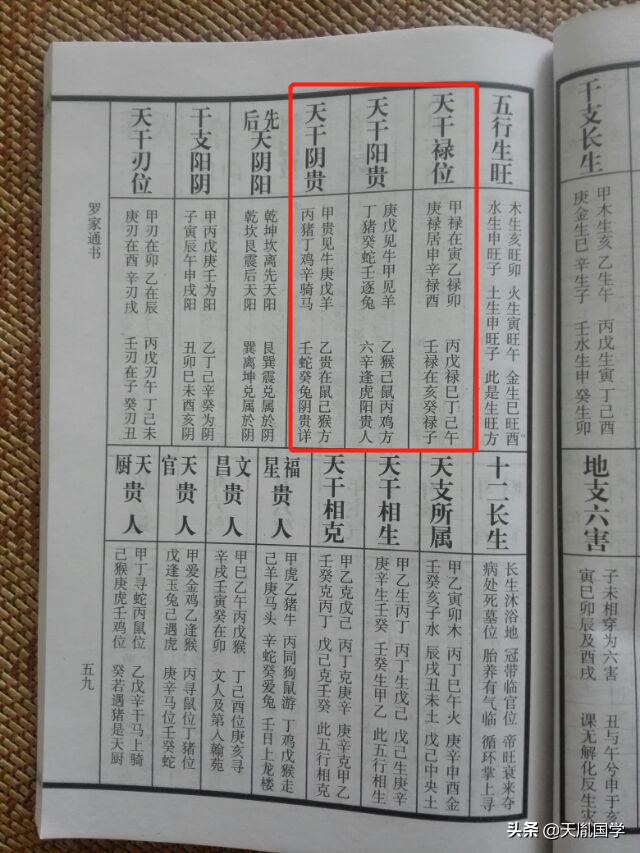 干支长生
甲木生亥 乙生午 丙戊生寅 丁己酉
庚金生巳 辛生子 壬水生申 癸生卯
地支六害
子未相穿为六害 丑与午兮申于亥
寅巳卯辰及酉戌 课无解化反生灾
五行生旺
木生亥旺卯 火生寅旺午 金生巳旺酉
水生申旺子 土生申旺子 此是生旺方
天干禄位
甲禄在寅乙禄卯 丙戊禄巳丁己午
庚禄居申辛禄酉 壬禄在亥癸禄子
天干阳贵
庚戊见牛甲见羊 乙猴己鼠丙鸡方
丁猪癸蛇壬逐兔 六辛逢虎阳贵人
天干阴贵
甲贵见牛庚戊羊 乙贵在鼠己猴方
丙猪丁鸡辛骑马 壬蛇癸兔阴贵详
先后天阴阳
乾坤坎离先天阳 艮巽震兑属於阴
乾坎艮震后天阳 巽离坤兑属於阴
干支阳阴
甲丙戊庚壬为阳 乙丁己辛癸为阴
子寅辰午申戌阳 丑卯巳未酉亥阴
天干刃位
甲刃在卯 乙在辰 丙戊刃午 丁己未
庚刃在酉 辛刃戌 壬刃在子 癸刃丑
十二长生
长生沐浴地 冠带临官位 帝旺衰来夺
病处死墓位 胎养有气临 循环掌上寻
天支所属
甲乙寅卯木 丙丁巳午火 庚辛申酉金
壬癸亥子水 辰戌丑未土 戊己中央土
天干相生
甲乙生丙丁 丙丁生戊己 戊己生庚辛
庚辛生壬癸 壬癸生甲乙 此五行相生
天干相克
甲乙克戊己 丙丁克庚辛 庚辛克甲乙
壬癸克丙丁 戊己克壬癸 此五行相克
福星贵人
甲虎乙猪牛 丙同狗鼠游 丁鸡戊猴走
己羊庚马头 辛蛇癸爱兔 壬日上龙楼
文昌贵人
甲巳乙午丙戊猴 丁己酉位庚亥寻
辛戌壬寅癸在卯 文人及第入翰苑
天官贵人
甲爱金鸡乙逢猴 丙寻鼠位丁猪位
戊逢玉兔己遇虎 庚辛马位壬癸蛇
天厨贵人
甲丁寻蛇丙鼠位 乙戊辛干马上骑
己猴庚虎壬鸡位 癸若遇猪是天厨
罗家通书
五九
头条 @天胤国学